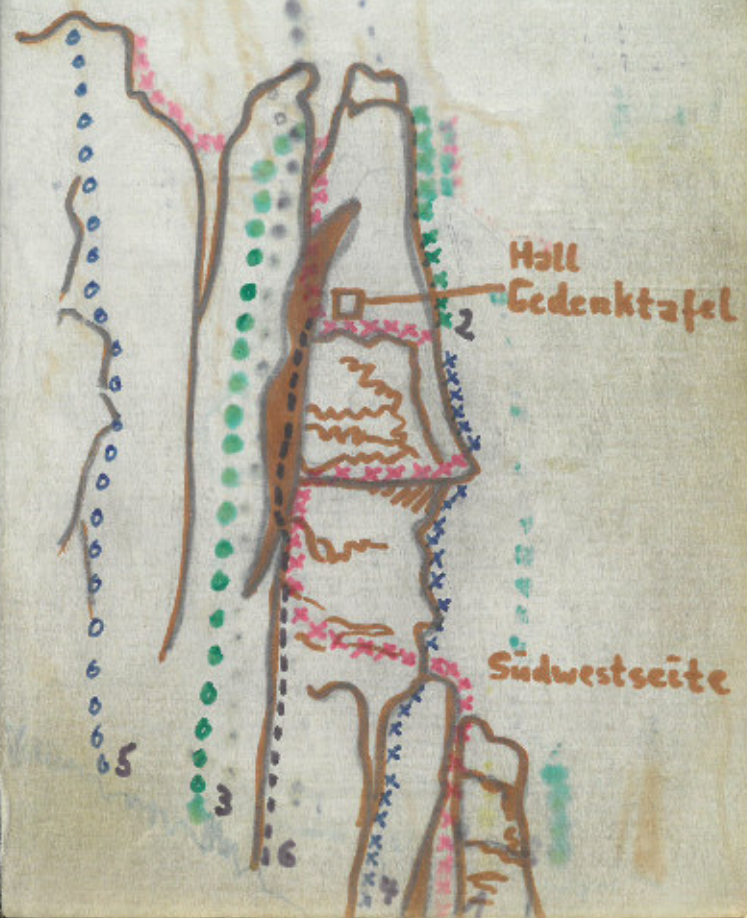 Hall
Gedenktafel
2
Südwestseite
5
3
6
4